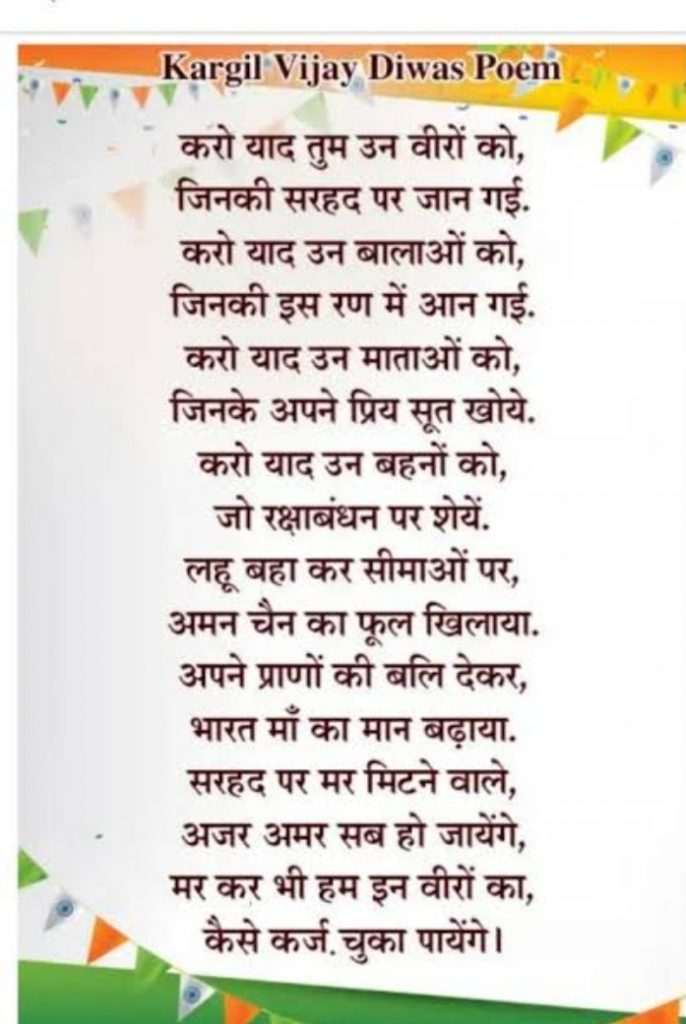 Kargil Vijay Diwas Poem
करो याद तुम उन वीरों को,
जिनकी सरहद पर जान गई.
करो याद उन बालाओं को,
जिनकी इस रण में आन गई.
करो याद उन माताओं को,
जिनके अपने प्रिय सूत खोये.
करो याद उन बहनों को,
जो रक्षाबंधन पर शेयें.
लहू बहा कर सीमाओं पर,
अमन चैन का फूल खिलाया.
अपने प्राणों की बलि देकर,
भारत माँ का मान बढ़ाया.
सरहद पर मर मिटने वाले,
अजर अमर सब हो जायेंगे,
मर कर भी हम इन वीरों का,
कैसे कर्ज. चुका पायेंगे।